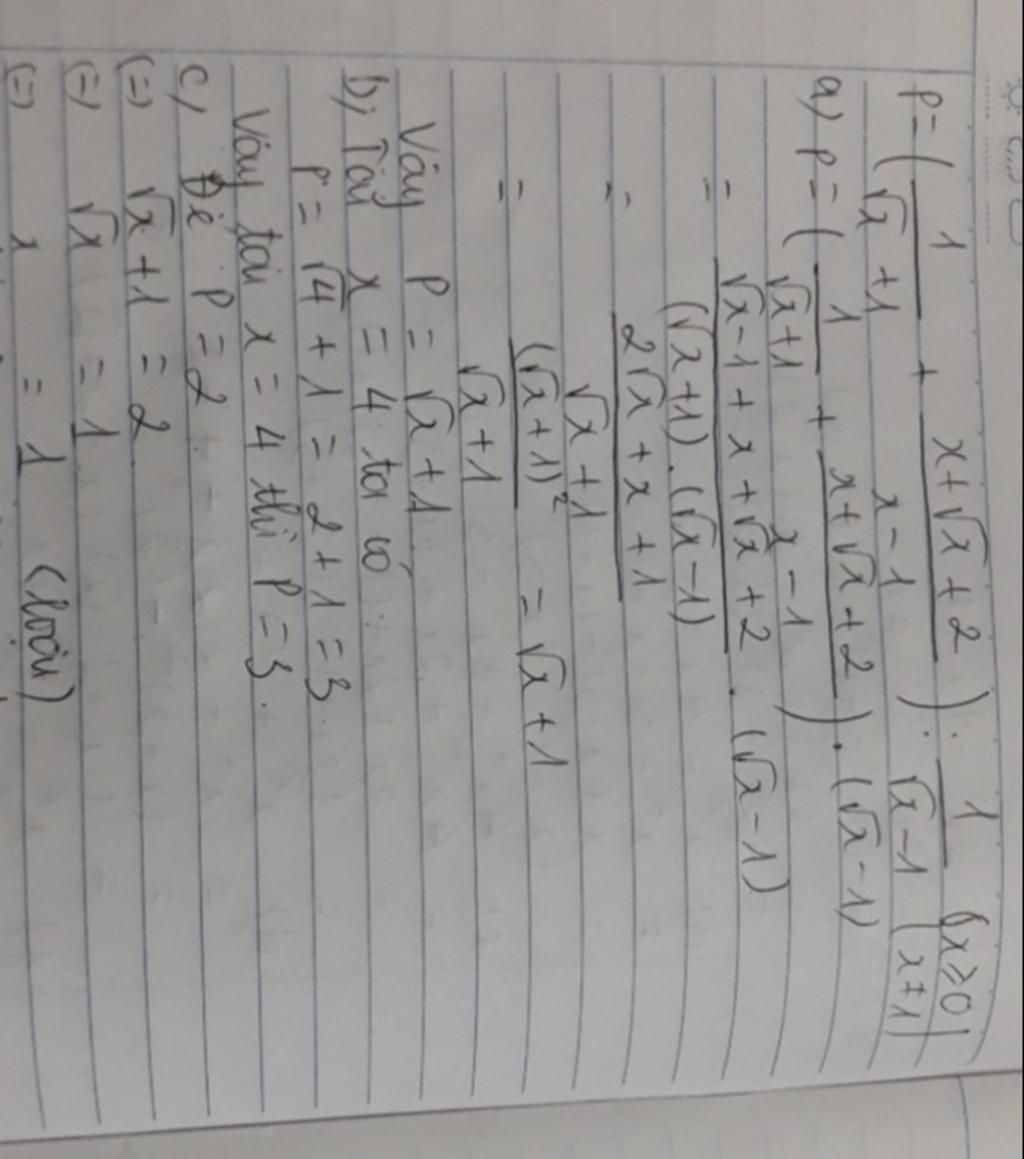 P = ( 1/(√x + 1) + (x + √x + 2)/(x - 1) ) : 1/(√x - 1) (x ≥ 0, x ≠ 1)
a) P = ( 1/(√x + 1) + (x + √x + 2)/(x - 1) ) . (√x - 1)
= (√x - 1 + x + √x + 2)/((√x + 1) . (√x - 1)) . (√x - 1)
= (2√x + x + 1)/(√x + 1)
= (√x + 1)²/(√x + 1) = √x + 1
Vây P = √x + 1
b, Tại x = 4 ta có
P = √4 + 1 = 2 + 1 = 3
Vây tại x = 4 thì P = 3.
c, Để P = 2
(=) √x + 1 = 2
(=) √x = 1
(=) x = 1 (loại)